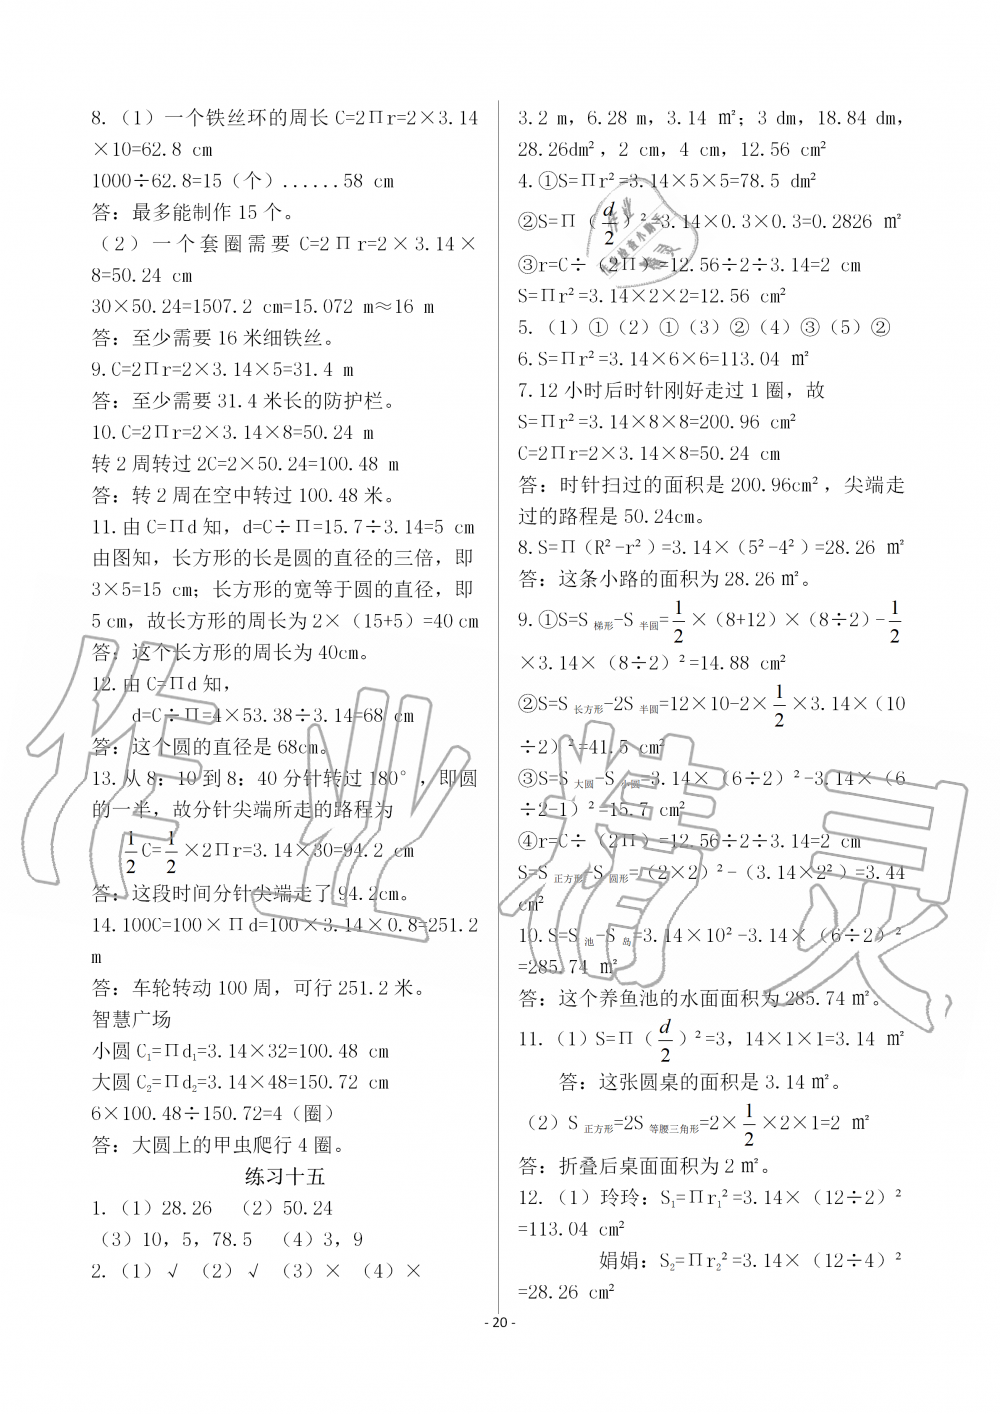 8.（1）一个铁丝环的周长 C=2Πr=2×3.14
×10=62.8 cm
1000÷62.8=15（个）......58 cm
答：最多能制作 15 个。
（2）一个套圈需要 C=2Πr=2×3.14×
8=50.24 cm
30×50.24=1507.2 cm=15.072 m≈16 m
答：至少需要 16 米细铁丝。
9.C=2Πr=2×3.14×5=31.4 m
答：至少需要 31.4 米长的防护栏。
10.C=2Πr=2×3.14×8=50.24 m
转 2 周转过 2C=2×50.24=100.48 m
答：转 2 周在空中转过 100.48 米。
11.由 C=Πd 知，d=C÷Π=15.7÷3.14=5 cm
由图知，长方形的长是圆的直径的三倍，即
3×5=15 cm；长方形的宽等于圆的直径，即
5 cm，故长方形的周长为 2×（15+5）=40 cm
答：这个长方形的周长为 40cm。
12.由 C=Πd 知，
d=C÷Π=4×53.38÷3.14=68 cm
答：这个圆的直径是 68cm。
13.从 8：10 到 8：40 分针转过 180°，即圆
的一半，故分针尖端所走的路程为
1/2 C=1/2 ×2Πr=3.14×30=94.2 cm
答：这段时间分针尖端走了 94.2cm。
14.100C=100×Πd=100×3.14×0.8=251.2
m
答：车轮转动 100 周，可行 251.2 米。
智慧广场
小圆 C₁=Πd₁=3.14×32=100.48 cm
大圆 C₂=Πd₂=3.14×48=150.72 cm
6×100.48÷150.72=4（圈）
答：大圆上的甲虫爬行 4 圈。
练习十五
1.（1）28.26 （2）50.24
（3）10，5，78.5 （4）3，9
2.（1）√ （2）√ （3）× （4）×
3.2 m，6.28 m，3.14 m²；3 dm，18.84 dm，
28.26dm²，2 cm，4 cm，12.56 cm²
4.①S=Πr²=3.14×5×5=78.5 dm²
②S=Π（d/2）²=3.14×0.3×0.3=0.2826 m²
③r=C÷（2Π）=12.56÷2÷3.14=2 cm
S=Πr²=3.14×2×2=12.56 cm²
5.（1）①（2）①（3）②（4）③（5）②
6.S=Πr²=3.14×6×6=113.04 m²
7.12 小时后时针刚好走过 1 圈，故
S=Πr²=3.14×8×8=200.96 cm²
C=2Πr=2×3.14×8=50.24 cm
答：时针扫过的面积是 200.96cm²，尖端走
过的路程是 50.24cm。
8.S=Π（R²-r²）=3.14×（5²-4²）=28.26 m²
答：这条小路的面积为 28.26 m²。
9.①S=S 梯形-S 半圆=1/2 ×（8+12）×（8÷2）-1/2
×3.14×（8÷2）²=14.88 cm²
②S=S 长方形-2S 半圆=12×10-2×1/2 ×3.14×（10
÷2）²=41.5 cm²
③S=S 大圆-S 小圆=3.14×（6÷2）²-3.14×（6
÷2-1）²=15.7 cm²
④r=C÷（2Π）=12.56÷2÷3.14=2 cm
S=S 正方形-S 圆形=（2×2）²-（3.14×2²）=3.44
cm²
10.S=S 池-S 岛=3.14×10²-3.14×（6÷2）²
=285.74 m²
答：这个养鱼池的水面面积为 285.74 m²。
11.（1）S=Π（d/2）²=3，14×1×1=3.14 m²
答：这张圆桌的面积是 3.14 m²。
（2）S 正方形=2S 等腰三角形=2×1/2 ×2×1=2 m²
答：折叠后桌面面积为 2 m²。
12.（1）玲玲：S₁=Πr₁²=3.14×（12÷2）²
=113.04 cm²
娟娟：S₂=Πr₂²=3.14×（12÷4）²
=28.26 cm²
- 20 -
作业精灵